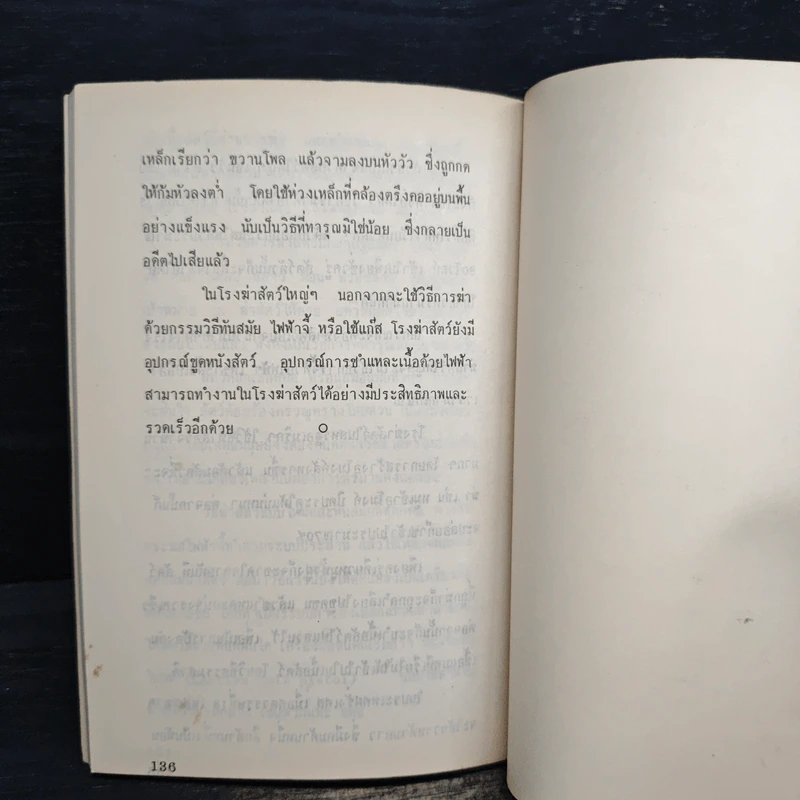 เหล็กเรียกว่า ขวานโพล แล้วจามลงบนหัววัว ซึ่งถูกกด
ให้ก้มหัวลงต่ำ โดยใช้ห่วงเหล็กที่คล้องตรึงคออยู่บนพื้น
อย่างแข็งแรง นับเป็นวิธีที่ทารุณมิใช่น้อย ซึ่งกลายเป็น
อดีตไปเสียแล้ว
ในโรงฆ่าสัตว์ใหญ่ๆ นอกจากจะใช้วิธีการฆ่า
ด้วยกรรมวิธีทันสมัย ไฟฟ้าจี้ หรือใช้แก๊ส โรงฆ่าสัตว์ยังมี
อุปกรณ์ขูดหนังสัตว์ อุปกรณ์การชำแหละเนื้อด้วยไฟฟ้า
สามารถทำงานในโรงฆ่าสัตว์ได้อย่างมีประสิทธิภาพและ
รวดเร็วอีกด้วย
136